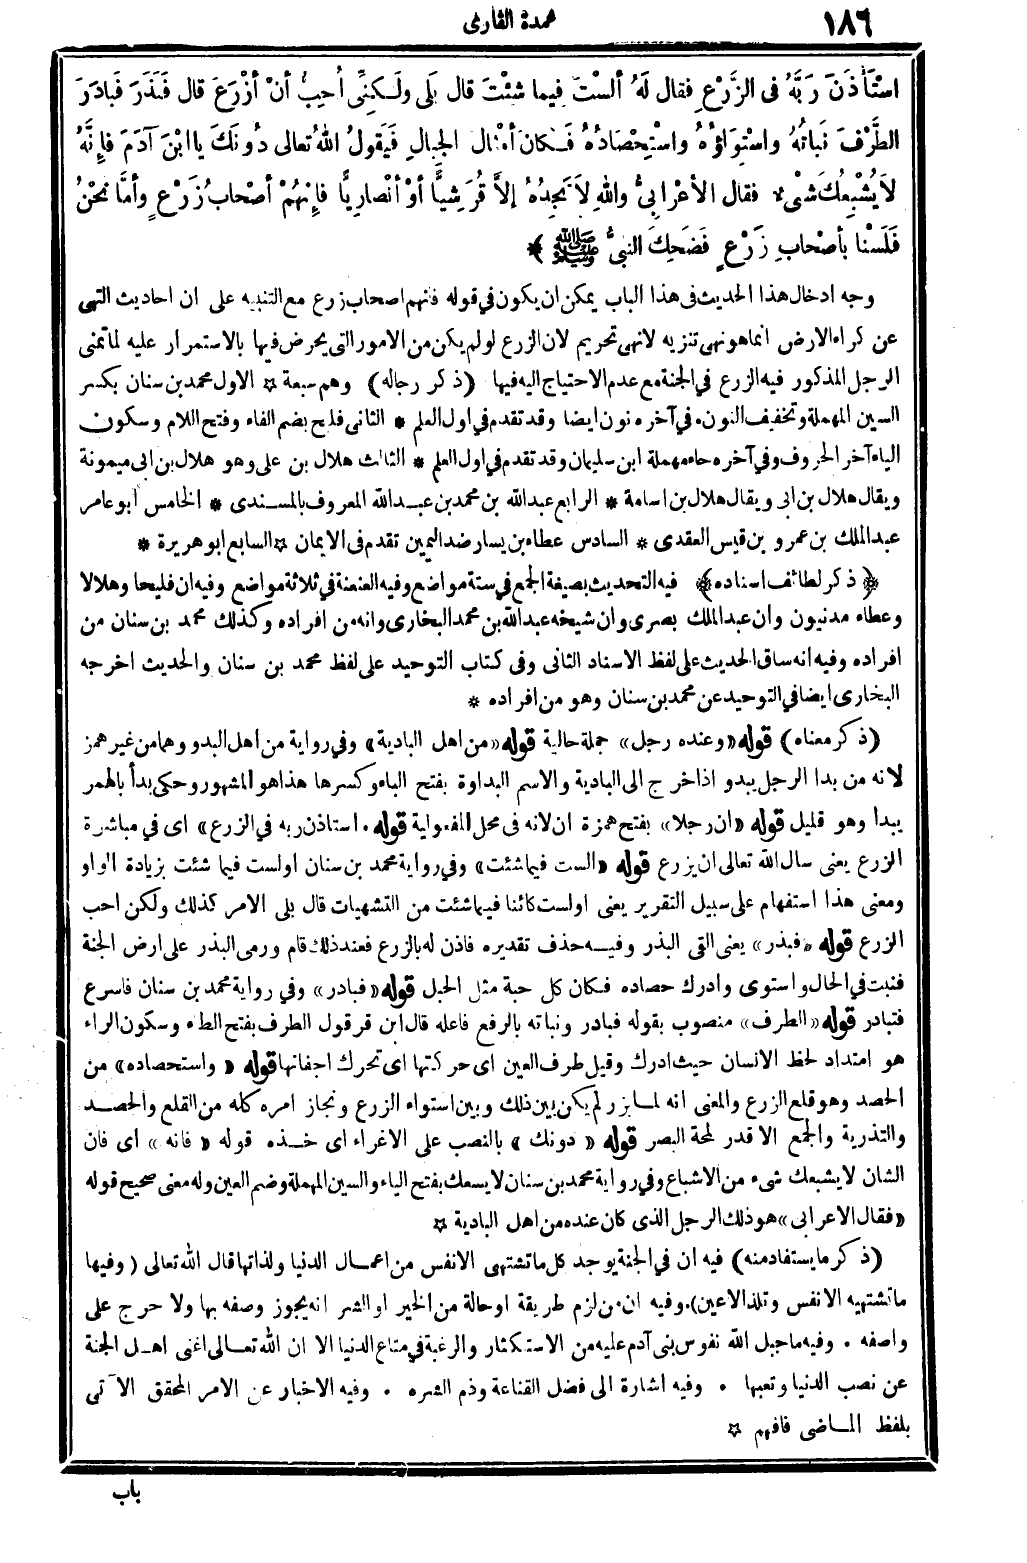 ١٨٦
عمدة القارئ
اسْتَأْذَنَ رَبَّهُ فى الزَّرْعِ فقال لَهُ ألَسْتَ فِيما شِئْتَ قال بَلَى ولَـكِنِّى أُحِبُّ أنْ أزْرَعَ قال فَبَذَرَ فَبادَرَ
الطَّرْفَ نَباتُهُ واسْتِوَاؤُهُ واسْتِحْصَادُهُ فَـكانَ أمْثالَ الجِبالِ فَيَقُولُ اللهُ تعالى دُونَكَ يا ابْنَ آدَمَ فإنَّهُ
لاَ يُشْبِعُكَ شَىْءٌ فقال الأعْرَابِىُّ واللهِ لاَ تَجِدُهُ إلاَّ قُرَشِيًّا أوْ أنْصارِيًّا فإنَّهُمْ أصْحابُ زَرْعٍ وأمَّا نَحْنُ
فَلَسْنا بأصْحابِ زَرْعٍ فَضَحِكَ النبىُّ ﷺ ﴾
وجه ادخال هذا الحديث فى هذا الباب يمكن ان يكون في قوله فانهم اصحاب زرع مع التنبيه على ان احاديث النهى
عن كراء الارض انما هو نهى تنزيه لا نهى تحريم لان الزرع لو لم يكن من الامور التى يحرض فيها بالاستمرار عليه لما تمنى
الرجل المذكور فيه الزرع في الجنة مع عدم الاحتياج اليه فيها (ذكر رجاله) وهم سبعة * الاول محمد بن سنان بكسر
السين المهملة وتخفيف النون. في آخره نون ايضا وقد تقدم في اول العلم * الثانى فليح بضم الفاء وفتح اللام وسكون
الياء آخر الحروف وفي آخره حاء مهملة ابن سليمان وقد تقدم في اول العلم * الثالث هلال بن على وهو هلال بن ابى ميمونة
ويقال هلال بن ابى ويقال هلال بن اسامة * الرابع عبدالله بن محمد بن عبـدالله المعروف بالمسـندى * الخامس أبو عامر
عبدالملك بن عمرو بن قيس العقدى * السادس عطاء بن يسار ضد اليمين تقدم فى الايمان * السابع ابو هريرة *
﴿ ذكر لطائف اسناده ﴾ فيه التحديث بصيغة الجمع في ستة مواضع وفيه العنعنة في ثلاثة مواضع وفيه ان فليحا وهلالا
وعطاء مدنيون وان عبدالملك بصرى وان شيخه عبدالله بن محمد البخارى وانه من افراده وكذلك محمد بن سنان من
افراده وفيه انه ساق الحديث على لفظ الاسناد الثانى وفى كتاب التوحيد على لفظ محمد بن سنان والحديث اخرجه
البخارى ايضا في التوحيد عن محمد بن سنان وهو من افراده *
(ذكر معناه) قوله «وعنده رجل» جملة حالية قوله «من اهل البادية» وفي رواية من اهل البدو وهما من غير همز
لانه من بدا الرجل يبدو اذا خرج الى البادية والاسم البداوة بفتح الباء وكسرها هذا هو المشهور وحكى بدأ بالهمز
يبدأ وهو قليل قوله «ان رجلا» بفتح همزة ان لانه فى محل المفعولية قوله «استاذن ربه في الزرع» اى في مباشرة
الزرع يعنى سال الله تعالى ان يزرع قوله «الست فيما شئت» وفي رواية محمد بن سنان اولست فيما شئت بزيادة الواو
ومعنى هذا استفهام على سبيل التقرير يعنى اولست كائنا فيما شئت من التشهيات قال بلى الامر كذلك ولكن احب
الزرع قوله «فبذر» يعنى القى البذر وفيـه حذف تقديره فاذن له بالزرع فعند ذلك قام ورمى البذر على ارض الجنة
فنبت في الحال واستوى وادرك حصاده فكان كل حبة مثل الجبل قوله «فبادر» وفي رواية محمد بن سنان فاسرع
فتبادر قوله «الطرف» منصوب بقوله فبادر ونباته بالرفع فاعله قال ابن قرقول الطرف بفتح الطاء وسكون الراء
هو امتداد لحظ الانسان حيث ادرك وقيل طرف العين اى حركتها اى تحرك اجفانها قوله «واستحصاده» من
الحصد وهو قلع الزرع والمعنى انه لما بزر لم يكن بين ذلك وبين استواء الزرع ونجاز امره كله من القلع والحصـد
والتذرية والجمع الا قدر لمحة البصر قوله «دونك» بالنصب على الاغراء اى خـذه قوله «فانه» اى فان
الشان لا يشبعك شىء من الاشباع وفي رواية محمد بن سنان لا يسعك بفتح الياء والسين المهملة وضم العين وله معنى صحيح قوله
«فقال الاعرابى» هو ذلك الرجل الذى كان عنده من اهل البادية *
(ذكر ما يستفاد منه) فيه ان في الجنة يوجد كل ما تشتهى الانفس من اعمـال الدنيا ولذاتها قال الله تعالى (وفيها
ما تشتهيه الانفس وتلذ الاعين). وفيه ان من لزم طريقة او حالة من الخير او الشر انه يجوز وصفه بها ولا حرج على
واصفه . وفيه ما جبل الله نفوس بنى آدم عليه من الاستكثار والرغبة في متاع الدنيا الا ان الله تعـالى اغنى اهـل الجنة
عن نصب الدنيا وتعبها . وفيه اشارة الى فضل القناعة وذم الشره . وفيه الاخبار عن الامر المحقق الآتى
بلفظ المـاضى فافهم *
باب